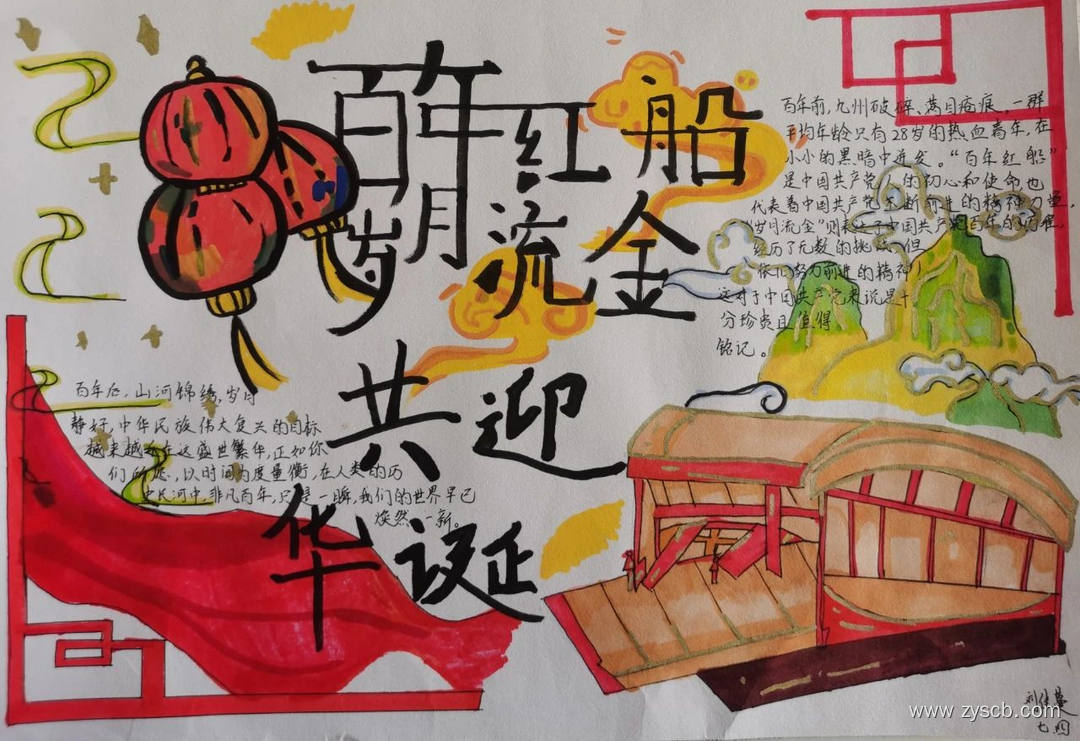 百年红船
岁月流金
共迎
华诞
百年前,九州破碎,满目疮痍,一群
平均年龄只有28岁的热血青年,在
小小的黑暗中迸发。“百年红船”
是中国共产党人的初心和使命也
代表着中国共产党不断前进的精神力量,
“岁月流金”则表达了中国共产党百年的历程,
经历了无数的挑战,但
依旧努力前进的精神,
这对于中国共产党来说是十
分珍贵且值得
铭记。
百年后,山河锦绣,岁月
静好,中华民族伟大复兴的目标
越来越近在这盛世繁华,正如你
们所愿,以时间为度量衡,在人类的历
史长河中,非凡百年,只是一瞬,我们的世界早已
焕然一新。
七.四
www.zyscb.com